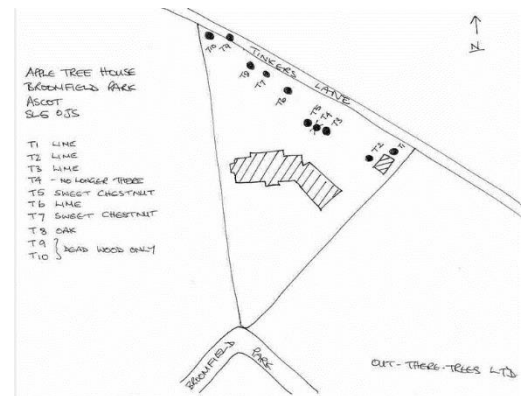 APPLE TREE HOUSE
BROOMFIELD PARK
ASCOT
SL5 0JS
T1 LIME
T2 LIME
T3 LIME
T4 - NO LONGER THERE
T5 SWEET CHESTNUT
T6 LIME
T7 SWEET CHESTNUT
T8 OAK
T9 } DEAD WOOD ONLY
T10
T10 T9
TINKERS LANE
T8
T7
T6
T5
T4
T3
T2
T1
N
BROOMFIELD PARK
OUT-THERE-TREES LTD